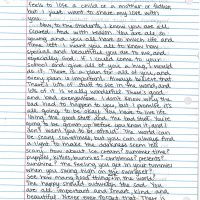 feels to lose a child or a mother or father,
but I just want to share my love with
you.
Now, to the students, I know you are all
scared. But with reason. You are all so
young and you all have so much life and
time left. I want you all to know how
special and beautiful you are to me, and
especially God. If I could come to your
school and give all of you a hug, I would
do it. There is a plan for all of you, and
every plan is important. Always believe that
there's lots of that to see in the world, and
lots of it is really wonderful. There's good,
and bad everywhere. I don't know why the
bad had to happen to you, but I promise it's
all going to be okay. You have to see life
thing, the good stuff and the bad stuff. You're
going to be grown up before you know it, and I
don't want you to be afraid. The world can
be scary sometimes, but you can always find
a light to make the darkness seem less
scary. How about ice cream? Summer time?
puppies, kitties, bunnies? Christmas? Presents?
Sunshine? The feeling you get in your tummies
when you swing high on the swings?
See how many good things in the world?
The happy should outweigh the sad. You
are all important and smart, kind and
beautiful. Never ever forget that. There is